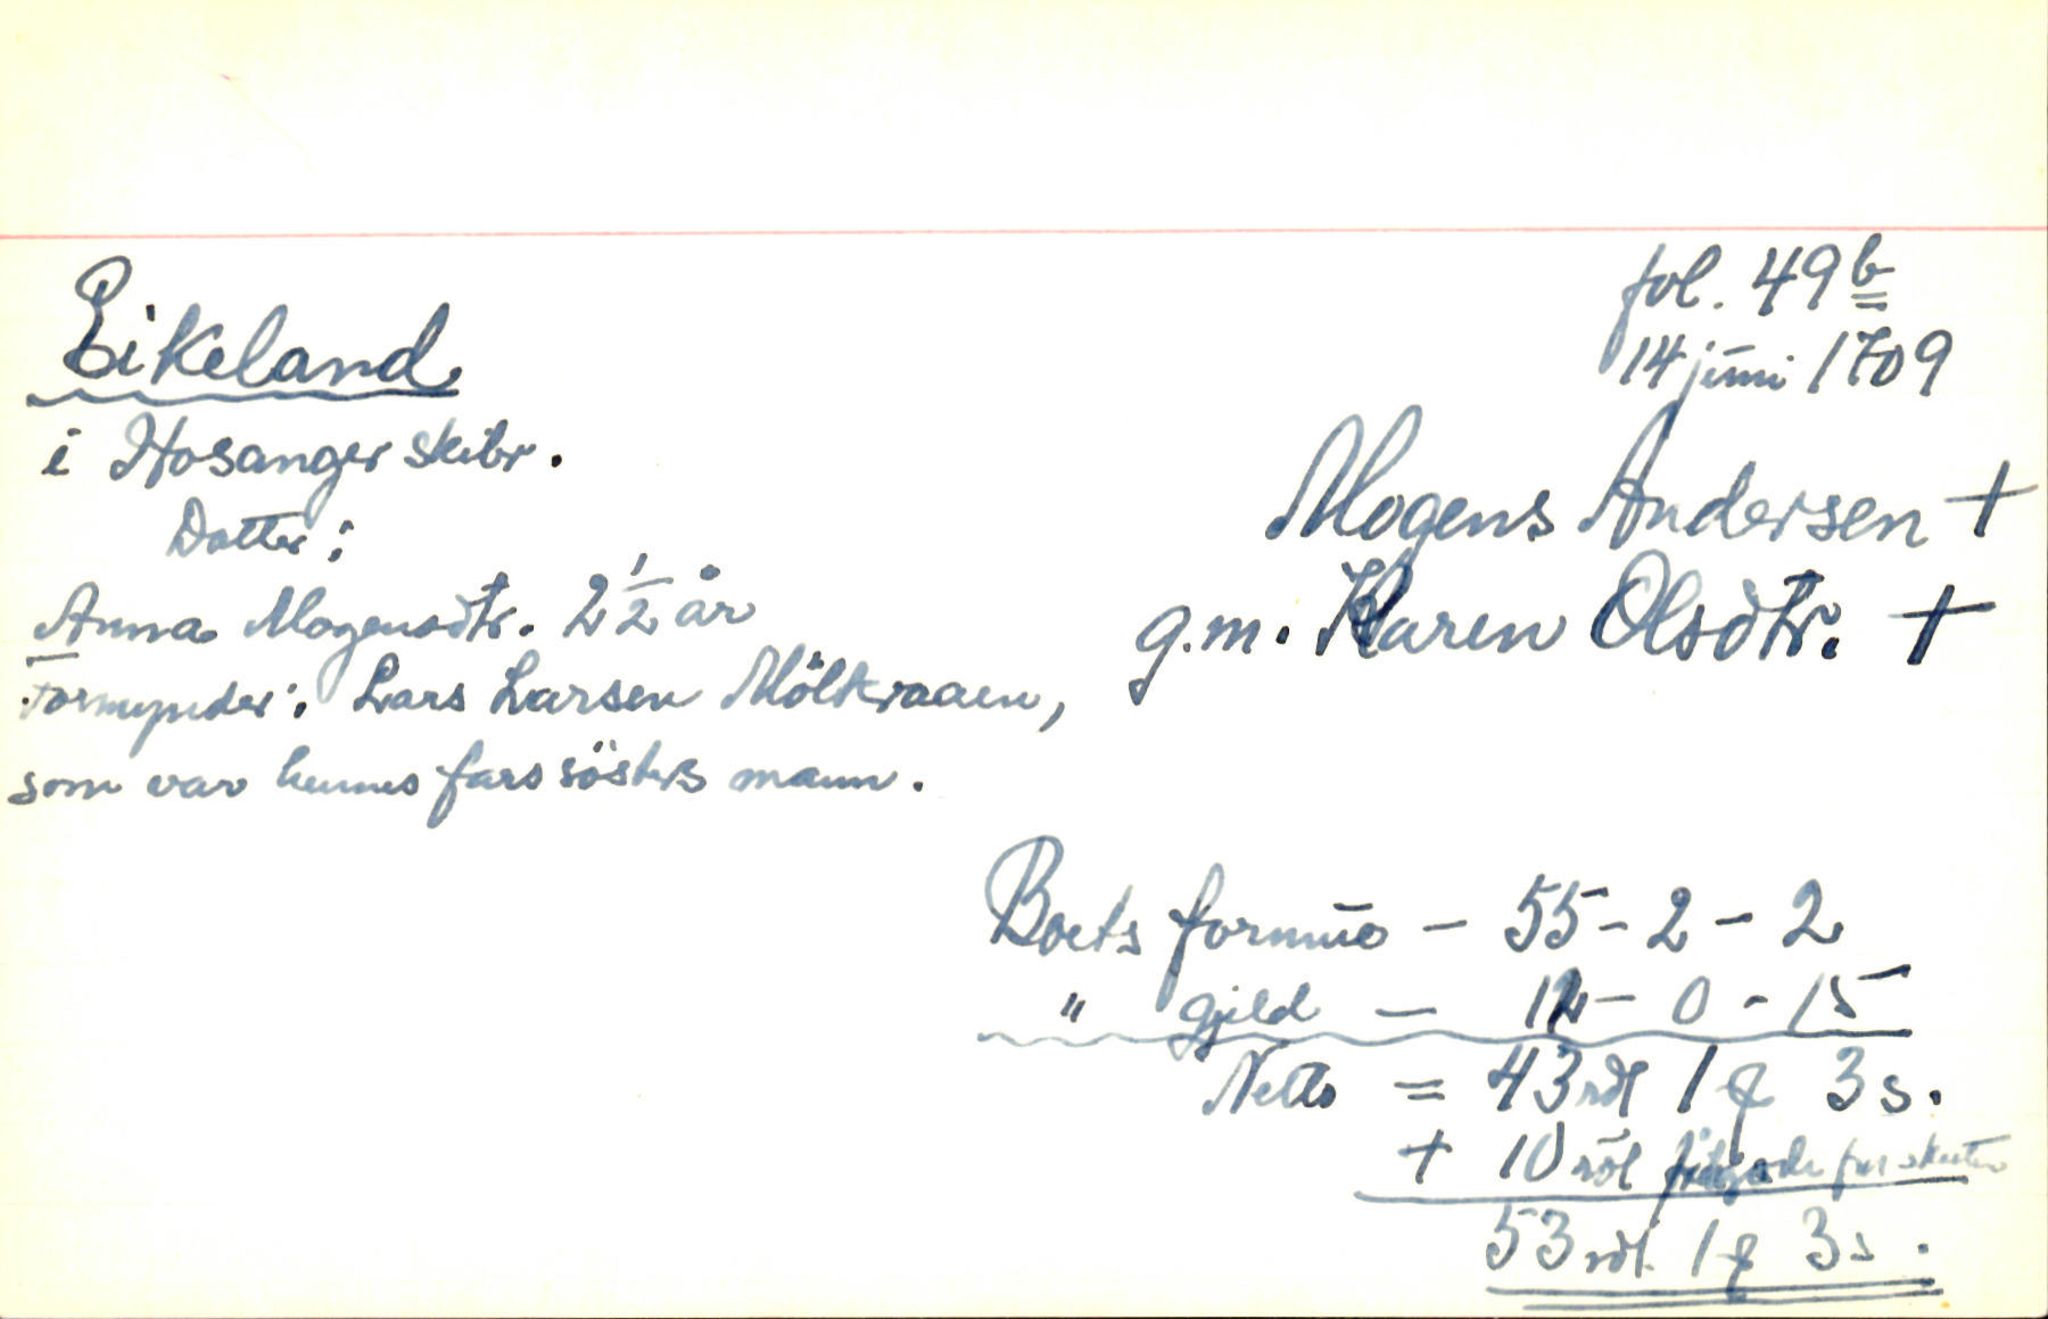 fol. 49 b
14 juni 1709
Eikeland
i Hosanger skibr.
Mogens Andersen +
g.m. Karen Olsdtr. +
Datter:
Anna Mogensdtr. 2 1/2 år
Formynder: Lars Larsen Möltkraaen,
som var hennes fars søsters mann.
Boets formue - 55 - 2 - 2
" Gjeld - 12 - 0 - 15
Netto = 43 rdl 1 ʄ 3 s.
+ 10 rdl
53 rdl. 1 ʄ 3 s.